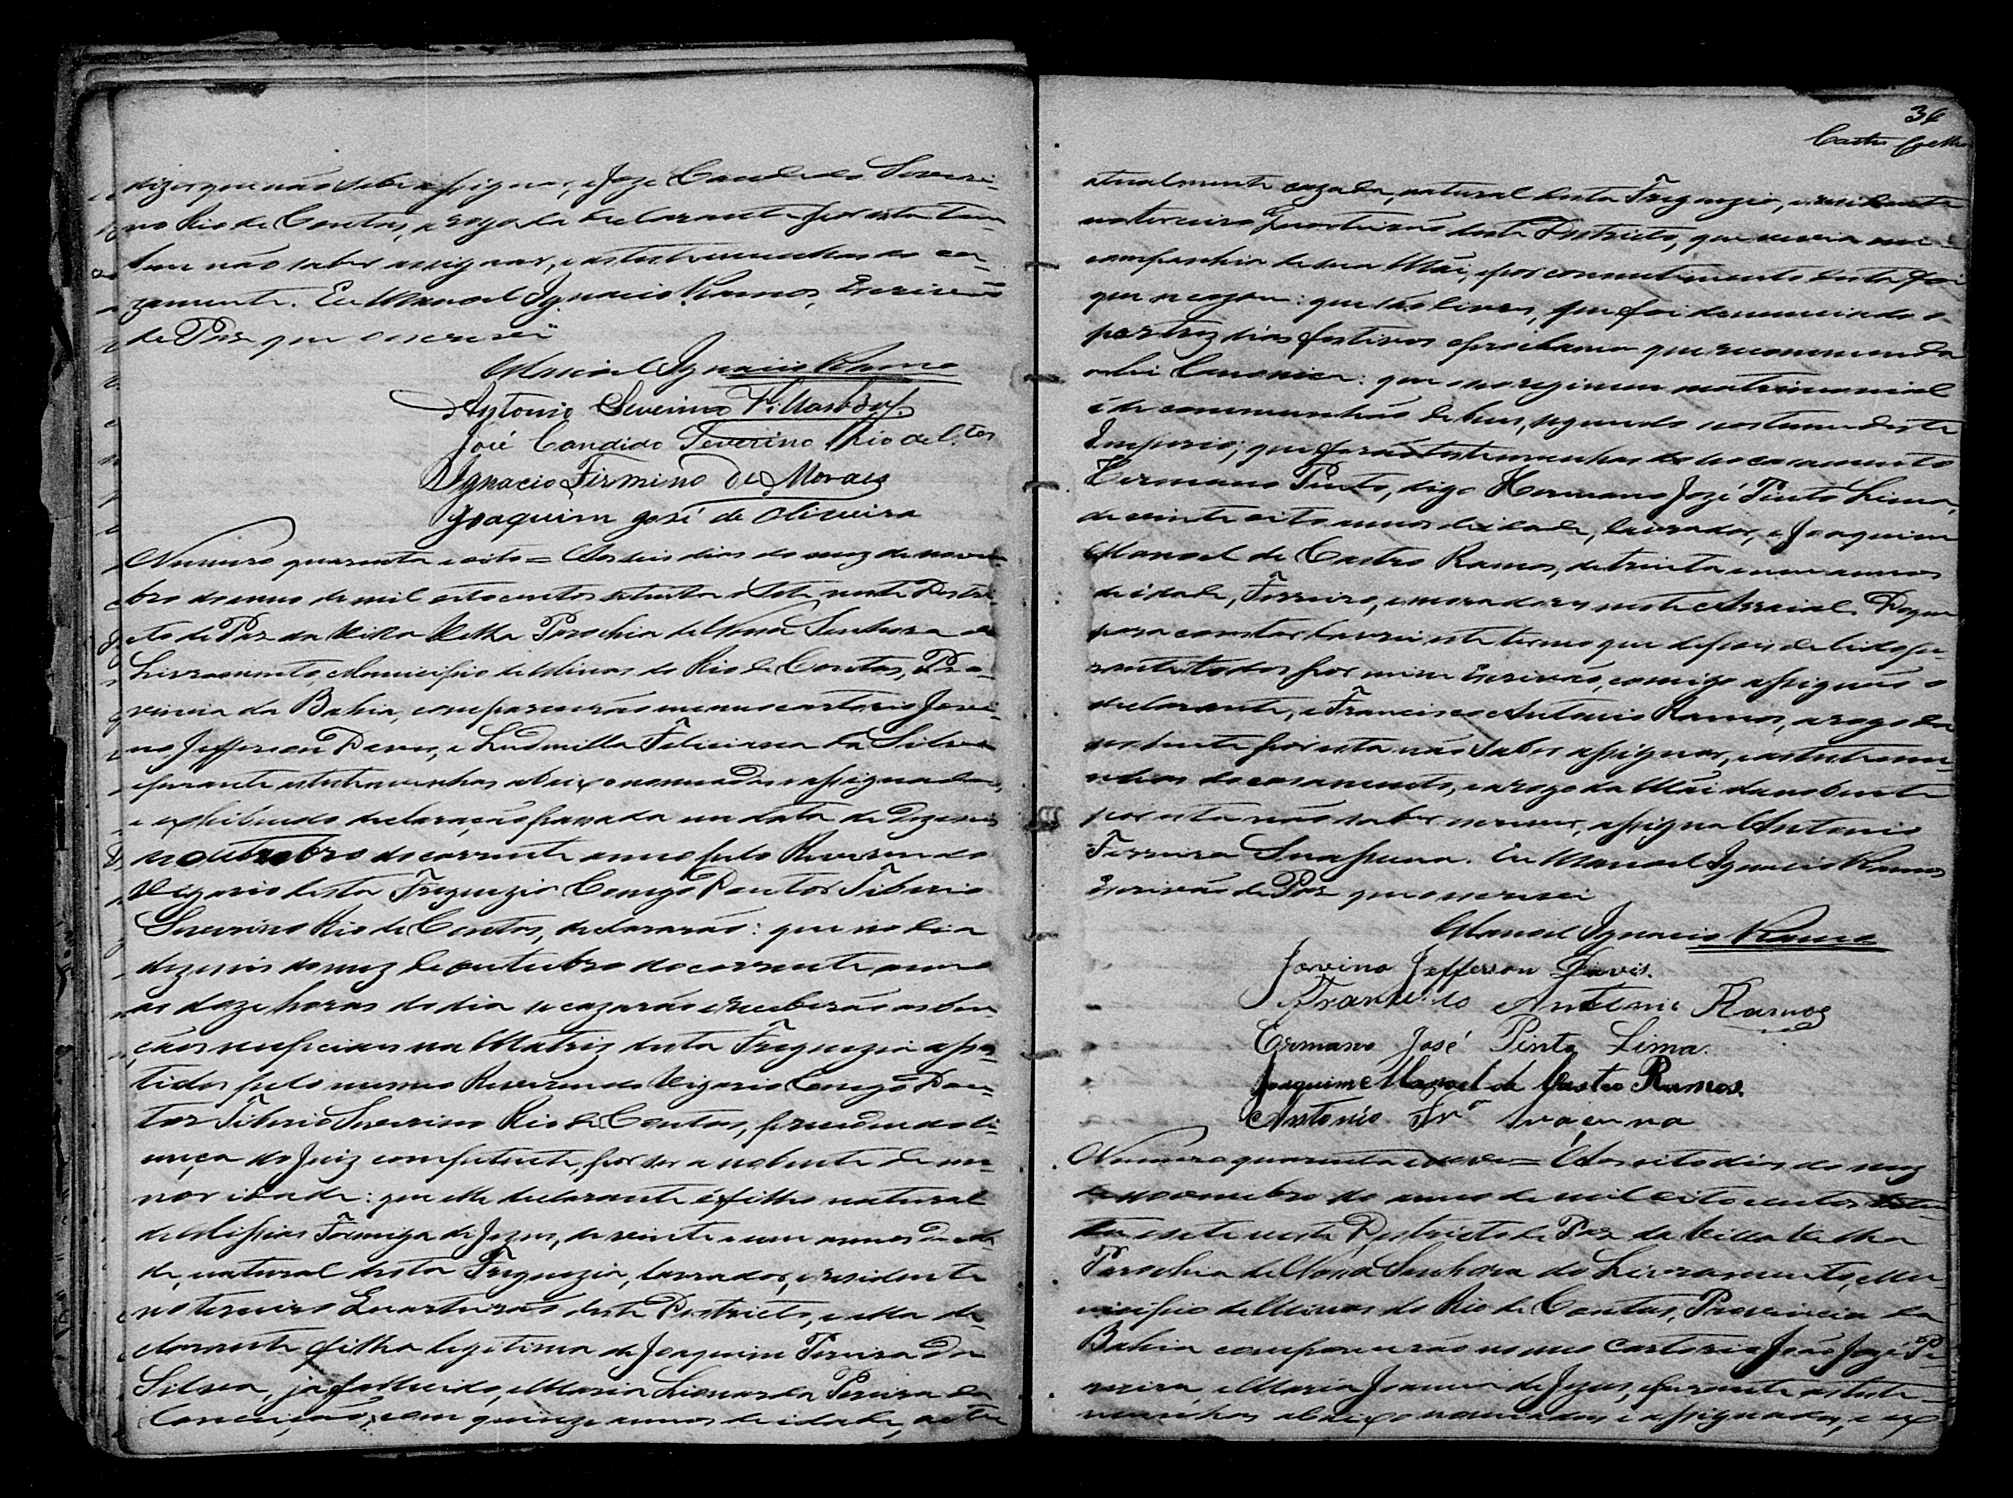 dizer que não sabe assignar, e Joze Candido Severi-
no Rio de Contas, a rogo da declarante por esta tam-
bem não saber assignar, e as testemunhas do ca-
zamento. Eu Manoel Ignacio Ramos, Escrivão
de Paz que o escrevi
Manoel Ignacio Ramos
Antonio Severino
José Candido Severino Rio de C.tas
Ignacio Firmino de Moraes
Joaquim José de Oliveira
Numero quarenta e oito = Aos seis dias do mez de novem-
bro do anno de mil oito centos setenta e sete neste Destri-
cto de Paz da Villa Velha Parochia de Nossa Senhora do
Livramento, Municipio de Minas do Rio de Contas, Pro-
vincia da Bahia, comparecerão em meu cartorio Jovi-
no Jefferson Daves, e Ludmilla Feliciana da Silva
e perante as testemunhas abaixo nomeadas e assignadas,
e exhibindo declaração passada em data de Dezeseis
de outubro do corrente anno pelo Reverendo
Vigario desta Freguezia Conego Doutor Tiberio
Severino Rio de Contas, declararão: que no dia
dezeseis do mez de outubro do corrente anno
as doze horas do dia se cazarão e receberão as ben-
çãos nupciaes na Matriz desta Freguezia assis-
tidos pelo mesmo Reverendo Vigario Conego Dou-
tor Tiberio Severino Rio de Contas, precedendo li-
cença do Juiz competente, por ser a nubente de me-
nor idade: que elle declarante é filho natural
de Missias Formiga de Jezus, de vinte e um annos de ida-
de, natural desta Freguezia, lavrador, e residente
no terceiro Quarteirão deste Destricto, e ella de-
clarante filha legitima de Joaquim Pereira da
Silva, ja fallecido, e Maria Leonarda Pereira da
Conceição, com quinze annos de idade,
36
Castro
atualmente cazada, natural desta Freguezia, e residente
no terceiro Quarteirão deste Destricto, que vivia em
companhia de sua Mãi, e por consentimento desta foi
que se cazou: que são livres, que foi denunciado
por trez dias festivos o proclama que recommenda
a lei Canonica: que o seo regimen matrimonial
é de communhão de bens, segundo o costume deste
Imperio; que forão testemunhas do seo casamento
Hermano Pinto, digo Hermano Jozé Pinto Lima,
de vinte oito annos de idade, lavrador, e Joaquim
Manoel de Castro Ramos, de trinta e um annos
de idade, Ferreiro, e moradores neste Arraial. Do que
para constar lavrei este termo que depois de lido pe-
rante todos por mim Escrivão, comigo assignão o
declarante, e Francisco Antonio Ramos, a rogo da
nubente por esta não saber assignar, e as testemu-
nhas do casamento, e a rogo da Mãi da nubente
por esta não saber escrever, assigna Antonio
Ferreira Suassuna. Eu Manoel Ignacio Ramos
Escrivão de Paz que o escrevi
Manoel Ignacio Ramos
Jovino Jefferson Davis.
Francisco Antonio Ramos
Ermano José Pinto Lima.
Joaquim Manoel de Castro Ramos.
Antonio Frª
Numero quarenta e nove = Aos oito dias do mez
de novembro do anno de mil oito centos seten-
ta e sete neste Destricto de Paz da Villa Velha
Parochia de Nossa Senhora do Livramento, Mu-
nicipio de Minas do Rio de Contas, Provincia da
Bahia comparecerão no meo Cartorio João Jozé Pe-
reira e Maria Joanna de Jezus, e perante as teste-
munhas abaixo nomeadas e assignadas, e ex